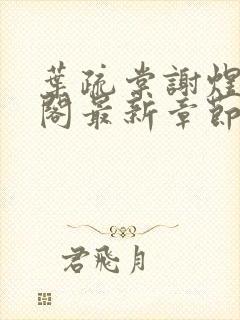 葉疏棠謝煜
閣最新章節
君飛月